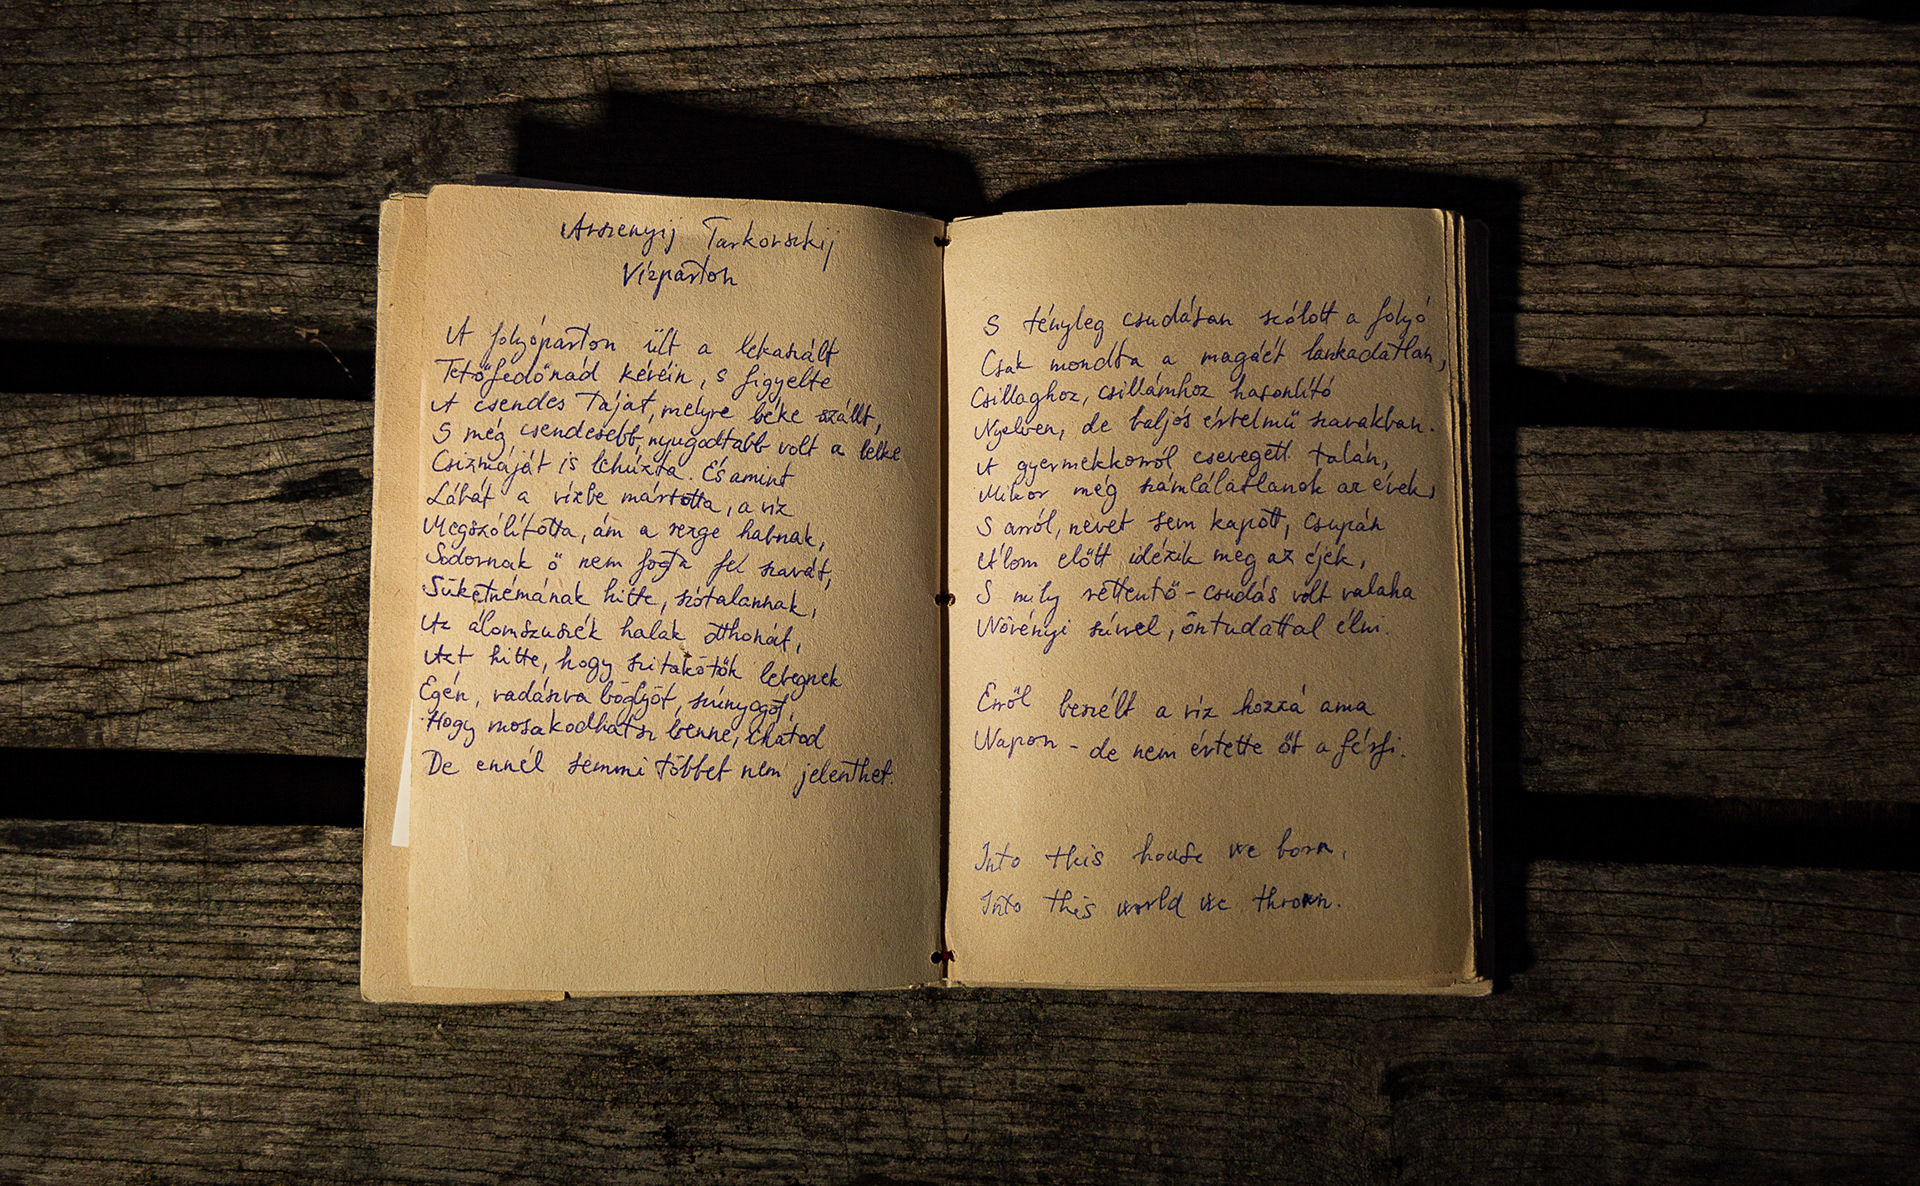 Arszenyij Tarkovszkij
Vízparton
A folyóparton ült a lekaszált
Tetőfedőnád kévéin, s figyelte
A csendes tájat, melyre béke szállt,
S még csendesebb, nyugodtabb volt a lelke
Csizmáját is lehúzta. És amint
Lábát a vízbe mártotta, a víz
Megszólította, ám a rezge habnak,
Sodornak ő nem fogta fel szavát,
Süketnémának hitte, szótalannak,
Az álomszuszék halak otthonát,
Azt hitte, hogy szitakötők lebegnek
Egén, vadászva böglyöt, szúnyogot,
Hogy mosakodhatsz benne, ihatod
De ennél semmi többet nem jelenthet.
S tényleg csudásan szólott a folyó
Csak mondta a magáét lankadatlan,
Csillaghoz, csillámhoz hasonlító
Nyelven, de baljós értelmű szavakban.
A gyermekkorról csevegett talán,
Mikor még számlálatlanok az évek,
S arról, nevet sem kapott, csupán
Álom előtt idézik meg az éjek,
S mily rettentő - csudás volt valaha
Növényi szívvel, öntudattal élni.
Erről beszélt a víz hozzá ama
Napon - de nem értette őt a férfi.
Into this house we born,
Into this world we thrown.